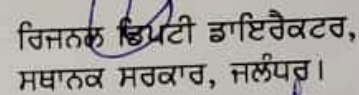 ਰਿਜਨਲ ਡਿਪਟੀ ਡਾਇਰੈਕਟਰ,
ਸਥਾਨਕ ਸਰਕਾਰ, ਜਲੰਧਰ।